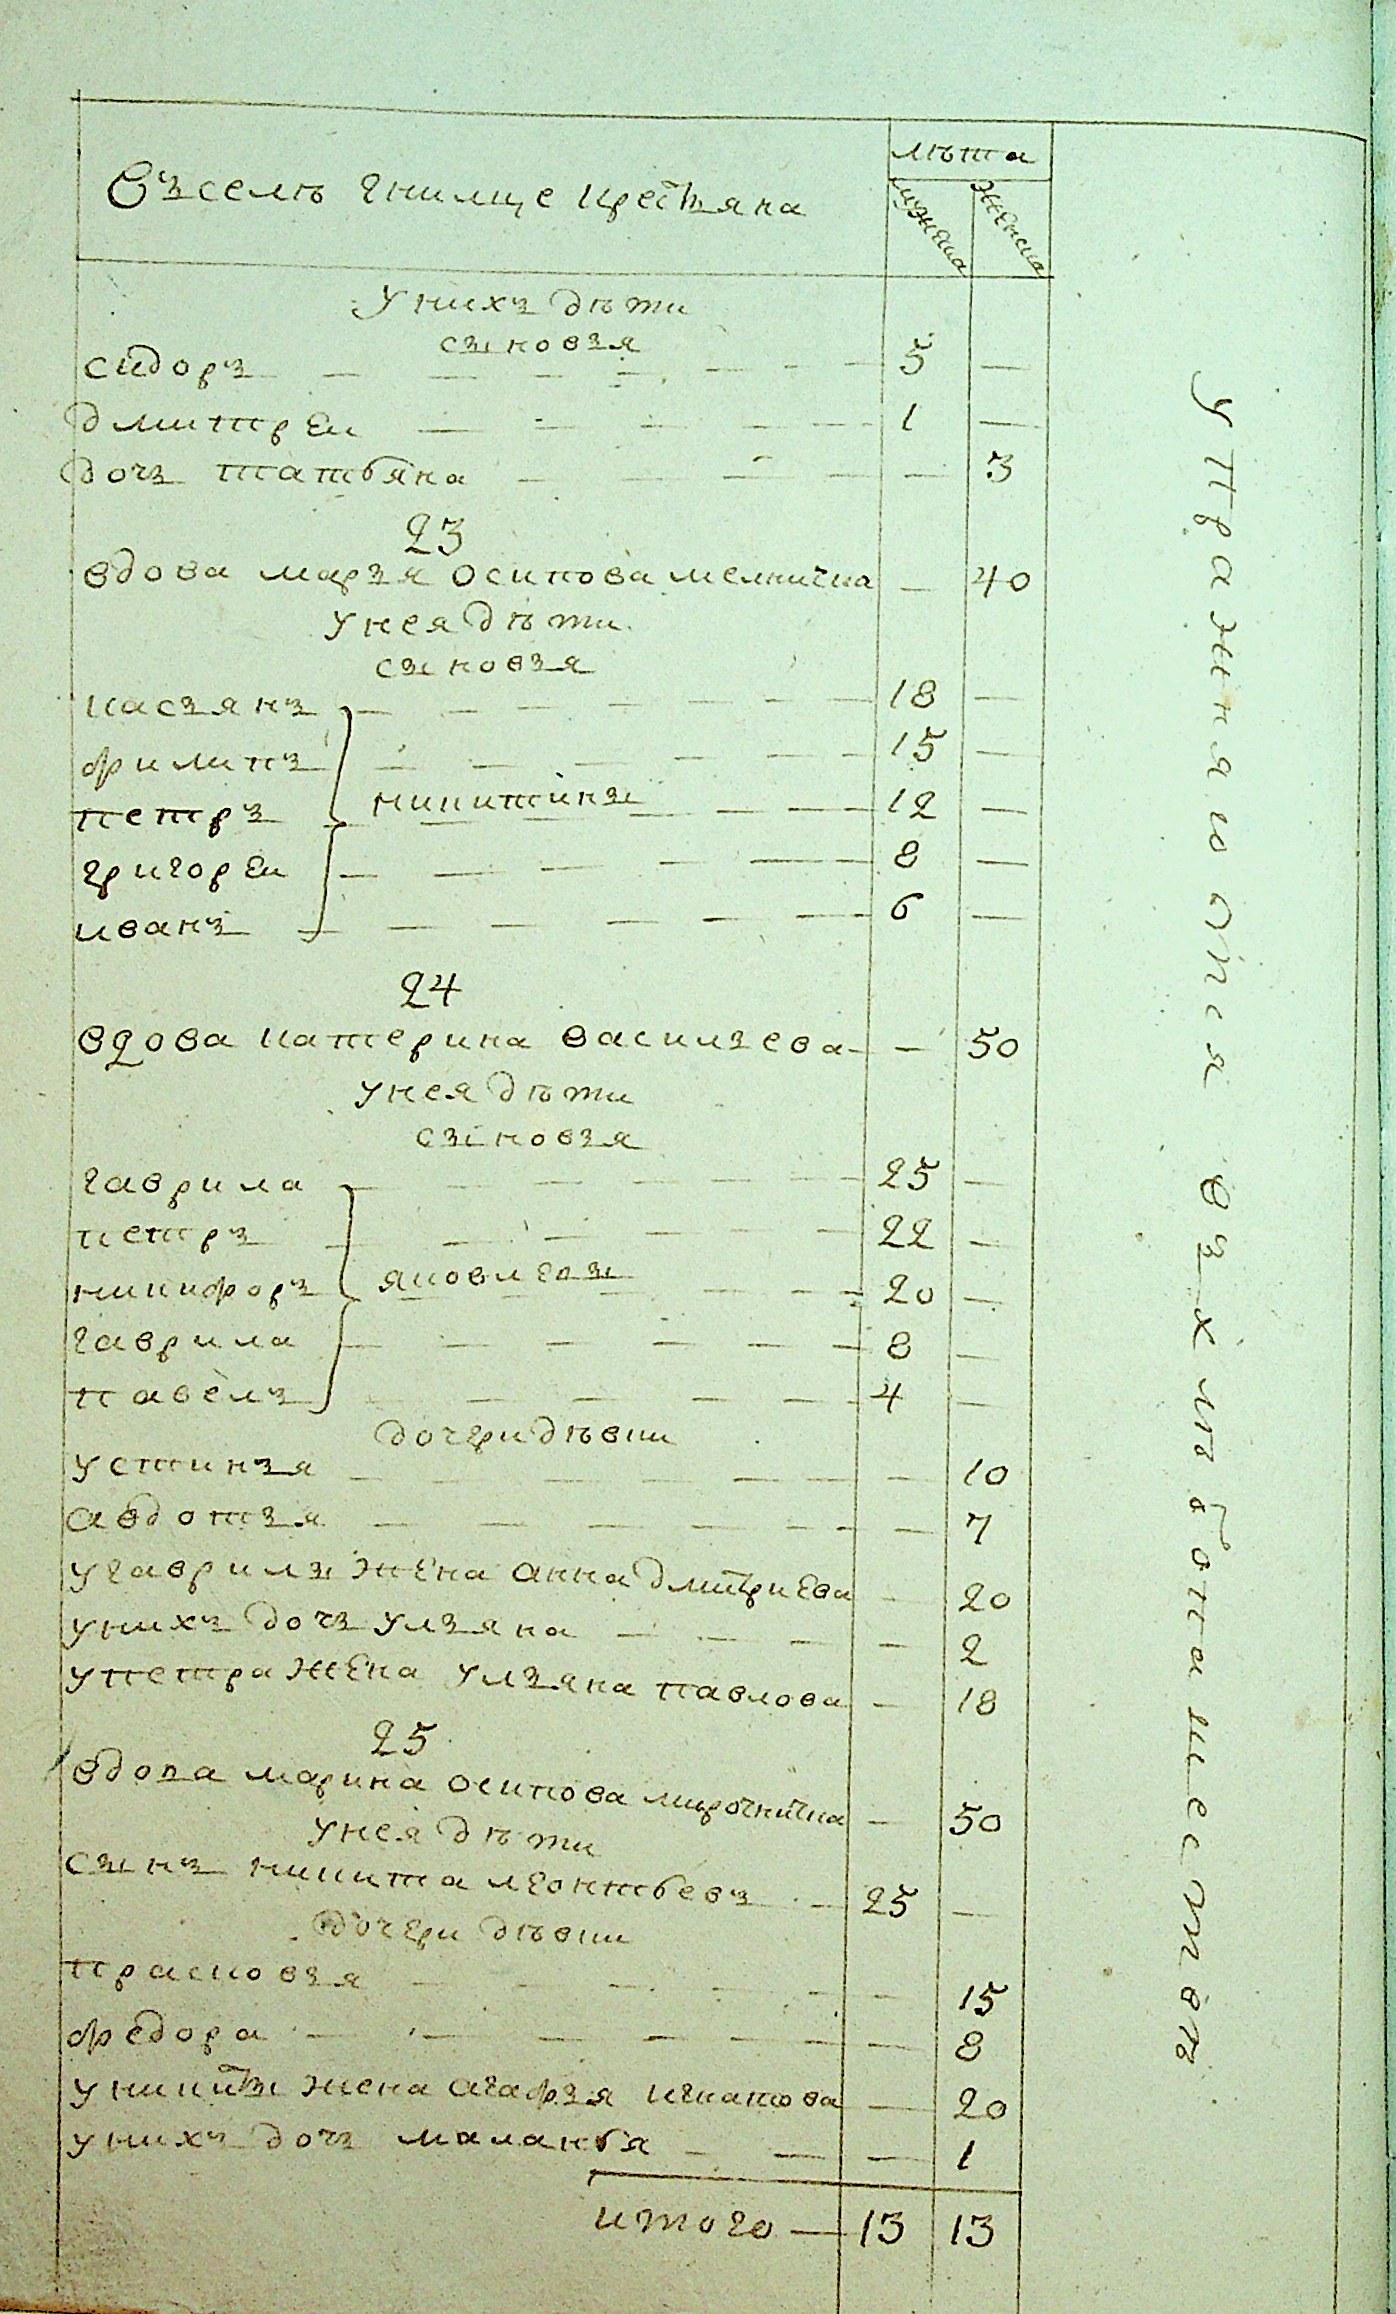 лѣта
Въселѣ гнилице крестьяна
мужеска
женска
Унихъ дѣти
сыновья
сидоръ — 5 —
дмитреи — 1 —
дочь татьяна — — 3
23
вдова марья осипова мелничка — 40
унея дѣти
сыновья
касьянъ — 18 —
филипъ — 15 —
петръ никитины — 12 —
григореи — 8 —
иванъ — 6 —
24
вдова катерина васильева — — 50
унея дѣти
сыновья
гаврила — 25 —
петръ — 22 —
никифоръ яковлевы — 20 —
гаврила — 8 —
павелъ — 4 —
дочери дѣвки
устинья — — 10
авдотья — — 7
угаврилы жена анна дмитриева — 20
унихъ дочь ульяна — — 2
упетра жена ульяна павлова — 18
25
вдова марина осипова мирочничка — 50
унея дѣти
сынъ никита леонтьевъ — 25 —
дочери дѣвки
прасковья — — 15
федора — — 8
уникиты жена агафья игнатова — 20
унихъ дочь маланья — — 1
итого — 13 13
упражняюпся въ хлѣбопашествѣ